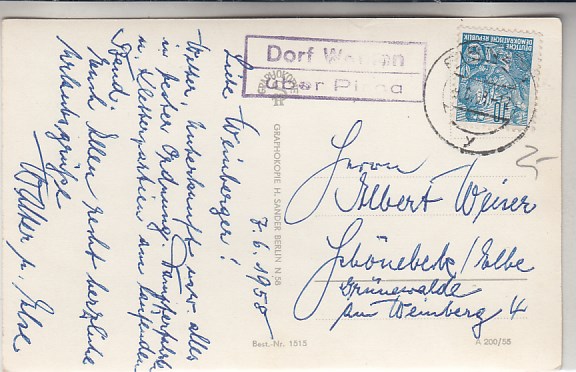 7.6.1958
Liebe Weinberger!
Wetter, Unterkunft usw. alles
in bester Ordnung. Dampferfahrt
u. Kletterpartien am laufenden
Band.
Euch Allen recht herzliche
Urlaubsgrüße
Walter u. Ilse
Dorf Wehlen
über Pirna
DEUTSCHE
DEMOKRATISCHE REPUBLIK
10
GRAPHOKOPIE H. SANDER BERLIN N 58
Herrn
Albert Weiser
Schönebeck/Elbe
Grünewalde
am Weinberg 4
Best.-Nr. 1515
A 200/55